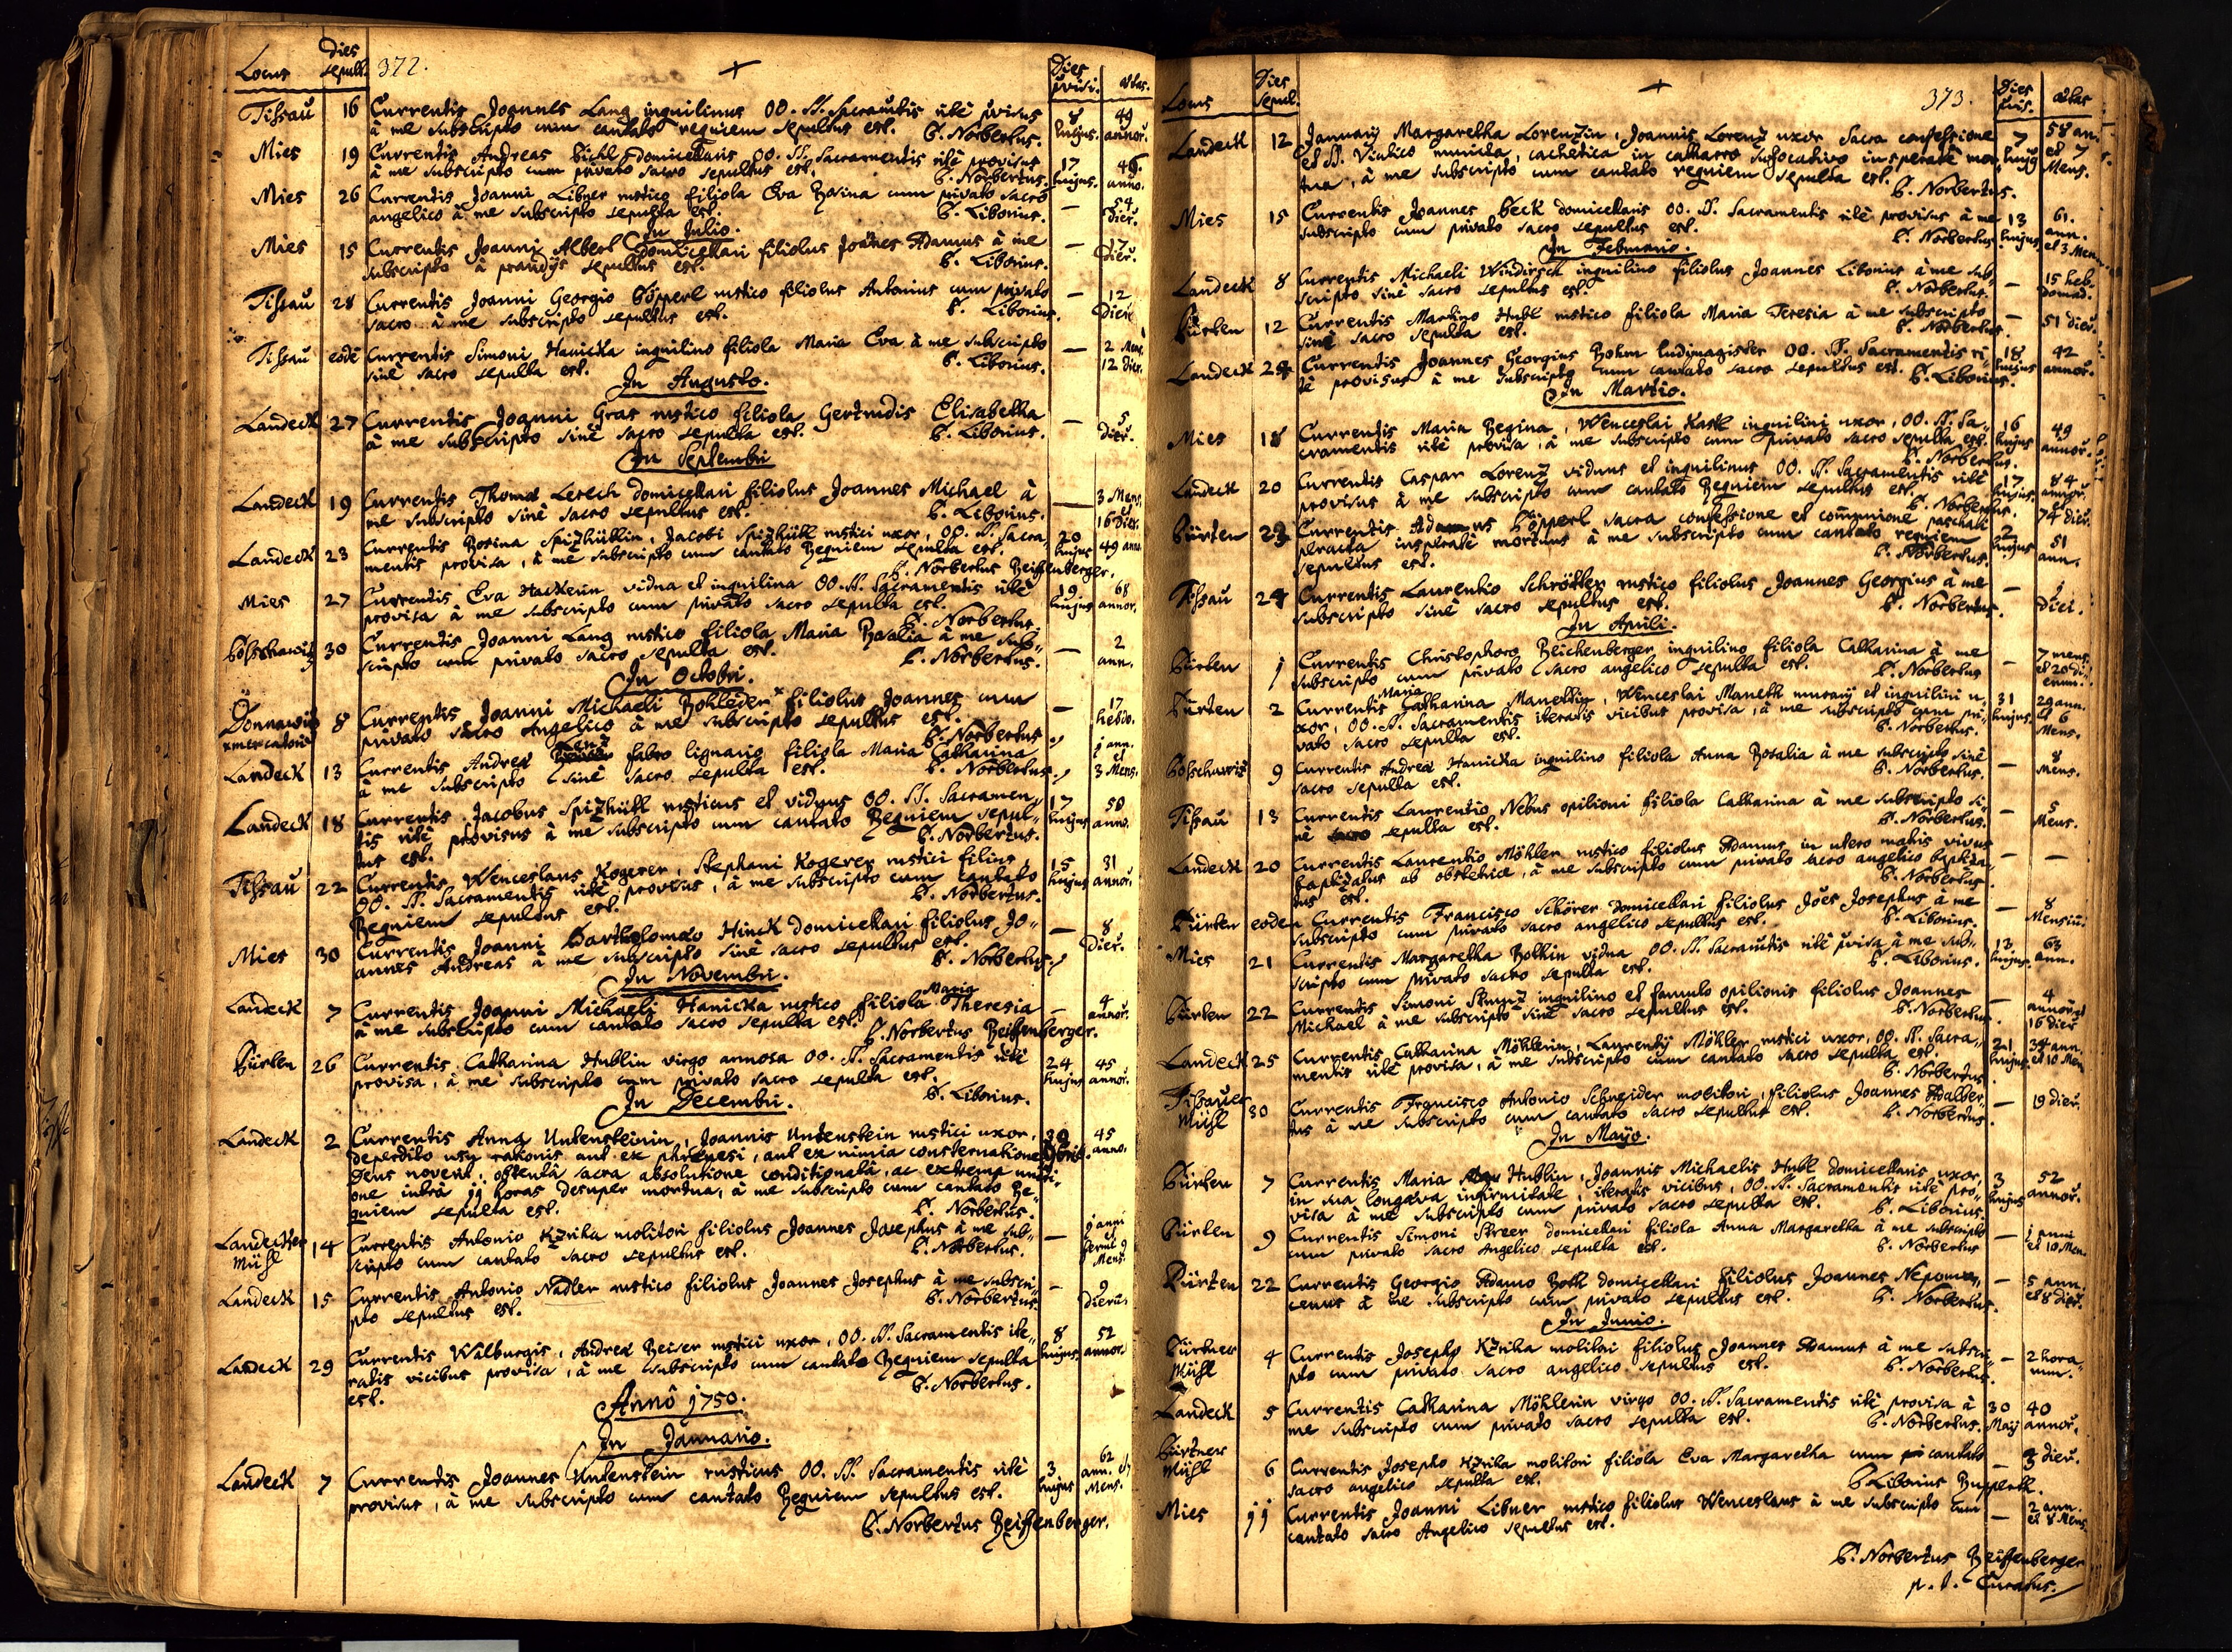 Locus dies sepult. 372. + Dies provi. aetas.
Tissau 16 Currentis Joannes Lang inquilinus OO. SS. Sacrautis ritè pvisus 8 49
à me subscripto cum cantato requiem sepultus est. P. Norbertus. hujus. annor.
Mies 19 Currentis Andreas Pichl domicellaris OO. SS. Sacramentis ritè provisus 17 46
à me subscripto cum privato sacro sepultus est. P. Norbertus. hujus. anno.
Mies 26 Currentis Joanni Libner rustico filiola Eva Rosina cum privato sacro — 54
angelico à me subscripto sepulta est. P. Liborius. Dier.
In Julio.
Mies 15 Currentis Joanni Alberl Domicellari filiolus Joannes Adamus à me — 17
subscripto à prandijs sepultus est. P. Liborius. Dier.
Tissau 28 Currentis Joanni Georgio Pöpperl rustico filiolus Antonius cum privato — 12
sacro à me subscripto sepultus est. P. Liborius. Dieru
Tissau eodē Currentis Simoni Hanicka inquilino filiola Maria Eva à me subscripto — 2 Mens.
sinè sacro sepulta est. P. Liborius. 12 dier.
In Augusto.
Landeck 27 Currentis Joanni Gras rustico filiola Gertrudis Elisabetha — 5
à me subscripto sinè sacro sepulta est. P. Liborius. dier.
In Septembri
Landeck 19 Currentis Thomæ Lerech domicellari filiolus Joannes Michael à — 3 Mens.
me subscripto sinè sacro sepultus est. P. Liborius. 16 dier.
Landeck 23 Currentis Rosina Spizhütlin, Jacobi Spizhütl rustici uxor, OO. SS. Sacra- 20
mentis provisa, à me subscripto cum cantato Requiem sepulta est. hujus 49 anno.
P. Norbertus Reiffenberger.
Mies 27 Currentis Eva Hackerin vidua et inquilina OO. SS. Sacramentis ritè 19 68
provisa à me subscripto cum privato sacro sepulta est. P. Norbertus. hujus annor.
30 Currentis Joanni Lang rustico filiola Maria Rosalia à me sub- — 2
scripto cum privato sacro sepulta est. P. Norbertus. ann.
In Octobri.
8 Currentis Joanni Michaeli Rohleder x filiolus Joannes cum — 17
x mercatori privato sacro Angelico à me subscripto sepultus est. P. Norbertus hebdo.
Landeck 13 Currentis Andreæ fabro lignario filiola Maria Catharina — 1 ann. et
à me subscripto sinè sacro sepulta est. P. Norbertus. 3 Mens.
Landeck 18 Currentis Jacobus Spizhütl rusticus et viduus OO. SS. Sacramen- 17 58
tis ritè provisus à me subscripto cum cantato Requiem sepul- hujus anno.
tus est. P. Norbertus.
Tissau 22 Currentis Wenceslaus Kogerer, Stephani Kogerer rustici filius, 15 31
OO. SS. Sacramentis ritè provisus, à me subscripto cum cantato hujus annor.
Requiem sepultus est. P. Norbertus.
Mies 30 Currentis Joanni Bartholomæo Hinck domicellari filiolus Jo- — 8
annes Andreas à me subscripto sinè sacro sepultus est. P. Norbertus. Dier.
In Novembri.
Landeck 7 Currentis Joanni Michaeli Hanicka rustico filiola Maria Theresia — 4
à me subscripto cum cantato sacro sepulta est. P. Norbertus Reiffenberger. annor.
Pürten 26 Currentis Catharina Hublin virgo annosa OO. SS. Sacramentis ritè 24 45
provisa, à me subscripto cum privato sacro sepulta est. P. Liborius. hujus annor.
In Decembri.
Landeck 2 Currentis Anna Untensteinin, Joannis Untenstein rustici uxor, 30 45
deperdito usu rationis aut ex phrenesi, aut ex nimia consternatione 9bris. anno.
Deus noverit, obtentâ sacra absolutione conditionatâ, ac extrema uncti-
one intrà 11 horas desuper mortua, à me subscripto cum cantato Re-
quiem sepulta est. P. Norbertus.
Landecker 14 Currentis Antonio Kzrika molitori filiolus Joannes Josephus à me sub- — 1 anni et
Mühl scripto cum cantato sacro sepultus est. P. Norbertus. fermè 9 Mens.
Landeck 15 Currentis Antonio Nadler rustico filiolus Joannes Josephus à me subscri- — 9
pto sepultus est. P. Norbertus. dierū.
Landeck 29 Currentis Walburgis, Andreæ Reiser rustici uxor, OO. SS. Sacramentis ite- 8 52
ratis vicibus provisa, à me subscripto cum cantato Requiem sepulta hujus annor.
est. P. Norbertus.
Annô 1750.
In Januario.
Landeck 7 Currentis Joannes Untenstein rusticus OO. SS. Sacramentis ritè 3 62 ann. et
provisus, à me subscripto cum cantato Requiem sepultus est. hujus Mens.
P. Norbertus Reiffenberger.
Locus Dies Sepul. + 373. Dies pvis. aetas
Landeck 12 Januarij Margaretha Lorenzin, Joannis Lorenz uxor Sacra confessione 7 58 ann.
et SS. Viatico munita, cachetica in catharro suffocativo insperatè mor- hujus et 7
tua, à me subscripto cum cantato requiem sepulta est. P. Norbertus. Mens.
Mies 15 Currentis Joannes Beck domicellaris OO. SS. Sacramentis ritè provisus à me 13 61. ann.
subscripto cum privato sacro sepultus est. P. Norbertus. hujus et 3 Mens.
In Februario.
Landeck 8 Currentis Michaeli Windirsch inquilino filiolus Joannes Liborius à me sub- — 15 heb-
scripto sinè sacro sepultus est. P. Norbertus. domad.
Pürten 12 Currentis Martino Hubl rustico filiola Maria Teresia à me subscripto — 51 dieru.
sinè sacro sepulta est. P. Norbertus.
Landeck 24 Currentis Joannes Georgius Böhm ludimagister OO. SS. Sacramentis ri- 18 42
tè provisus à me subscripto cum cantato sacro sepultus est. P. Liborius. hujus annor.
In Martio.
Mies 18 Currentis Maria Regina, Wenceslai Kastl inquilini uxor, OO. SS. Sa- 16 49
cramentis ritè provisa, à me subscripto cum privato sacro sepulta est. hujus annor.
P. Norbertus.
Landeck 20 Currentis Caspar Lorenz viduus et inquilinus OO. SS. Sacramentis ritè 17 84 annor. et
provisus à me subscripto cum cantato Requiem sepultus est. P. Norbertus. hujus. 74 dier.
Pürten 23 Currentis Adamus Pöpperl sacra confessione et communione paschali 2 51
peracta insperatè mortuus à me subscripto cum cantato requiem hujus ann.
sepultus est. P. Norbertus.
Tissau 24 Currentis Laurentio Schrötter rustico filiolus Joannes Georgius à me — 1
subscripto sinè sacro sepultus est. P. Norbertus. Diei.
In Aprili.
Pürten 1 Currentis Christophoro Reichenberger inquilino filiola Catharina à me — 7 mens.
subscripto cum privato sacro angelico sepulta est. P. Norbertus et 20 di-
erum.
Pürten 2 Currentis Maria Catharina Manethin, Wenceslai Maneth murarij et inquilini u- 31 29 ann.
xor, OO. SS. Sacramentis iteratis vicibus provisa, à me subscripto cum pri- hujus. et 6
vato sacro sepulta est. P. Norbertus. Mens.
9 Currentis Andreæ Hanicka inquilino filiola Anna Rosalia à me subscripto sinè — 8
sacro sepulta est. P. Norbertus. Mens.
Tissau 13 Currentis Laurentio Nebus opilioni filiola Catharina à me subscripto si- — 5
nè sacro sepulta est. P. Norbertus. Mens.
Landeck 20 Currentis Laurentio Möhler rustico filiolus Adamus in utero matris vivus — —
baptizatus ab obstetrice, à me subscripto cum privato sacro angelico
tus est. P. Norbertus.
Pürten eodem Currentis Francisco Schörer Domicellari filiolus Joes Josephus à me — 8
subscripto cum privato sacro angelico sepultus est. P. Liborius. Mensiū.
Mies 21 Currentis Margaretha Rothin vidua OO. SS. Sacrautis ritè pvisa à me sub- 13 63
scripto cum privato sacro sepulta est. P. Liborius. hujus. ann.
Pürten 22 Currentis Simoni inquilino et famulo opilionis filiolus Joannes — 4 annor. et
Michael à me subscripto sinè sacro sepultus est. P. Norbertus. 16 dieru
Landeck 25 Currentis Catharina Möhlerin, Laurentij Möhler rustici uxor, OO. SS. Sacra- 21 34 ann.
mentis ritè provisa, à me subscripto cum cantato sacro sepulta est. hujus. et 10 Men
P. Norbertus.
Tissauer 30 Currentis Francisco Antonio Schneider molitori, filiolus Joannes Adalber- — 19 dieru.
Mühl tus à me subscripto cum cantato sacro sepultus est. P. Norbertus.
In Majo.
Pürten 7 Currentis Maria Hublin, Joannis Michaelis Hubl domicellaris uxor, 3 52
in sua longæva infirmitate, iteratis vicibus, OO. SS. Sacramentis ritè pro- hujus annor.
visa à me subscripto cum privato sacro sepulta est. P. Liborius.
Pürten 9 Currentis Simoni Streer domicellari filiola Anna Margaretha à me subscripto — 1 anni
cum privato sacro Angelico sepulta est. P. Norbertus et 10 Men.
Pürten 22 Currentis Georgio Adamo Rotl domicellari filiolus Joannes Nepomu- — 5 ann.
cenus à me subscripto cum privato sepultus est. P. Norbertus. et 8 dieru.
In Junio.
Pürtner 4 Currentis Josepho Kzrika molitori filiolus Joannes Adamus à me subscri- — 2 hora-
Mühl pto cum privato sacro angelico sepultus est. P. Norbertus. rum.
Landeck 5 Currentis Catharina Möhlerin virgo OO. SS. Sacramentis ritè provisa à 30 40
me subscripto cum privato sacro sepulta est. P. Norbertus. Maij annor.
Pürtner
Mühl 6 Currentis Josepho Kzrika molitori filiola Eva Margaretha cum cantato — 3 dieru.
sacro angelico sepulta est. P. Liborius Rupprech.
Mies 11 Currentis Joanni Libner rustico filiolus Wenceslaus à me subscripto cum — 2 ann.
cantato sacro Angelico sepultus est. et 8 Mens.
P. Norbertus Reiffenberger
p. t. Curatus.